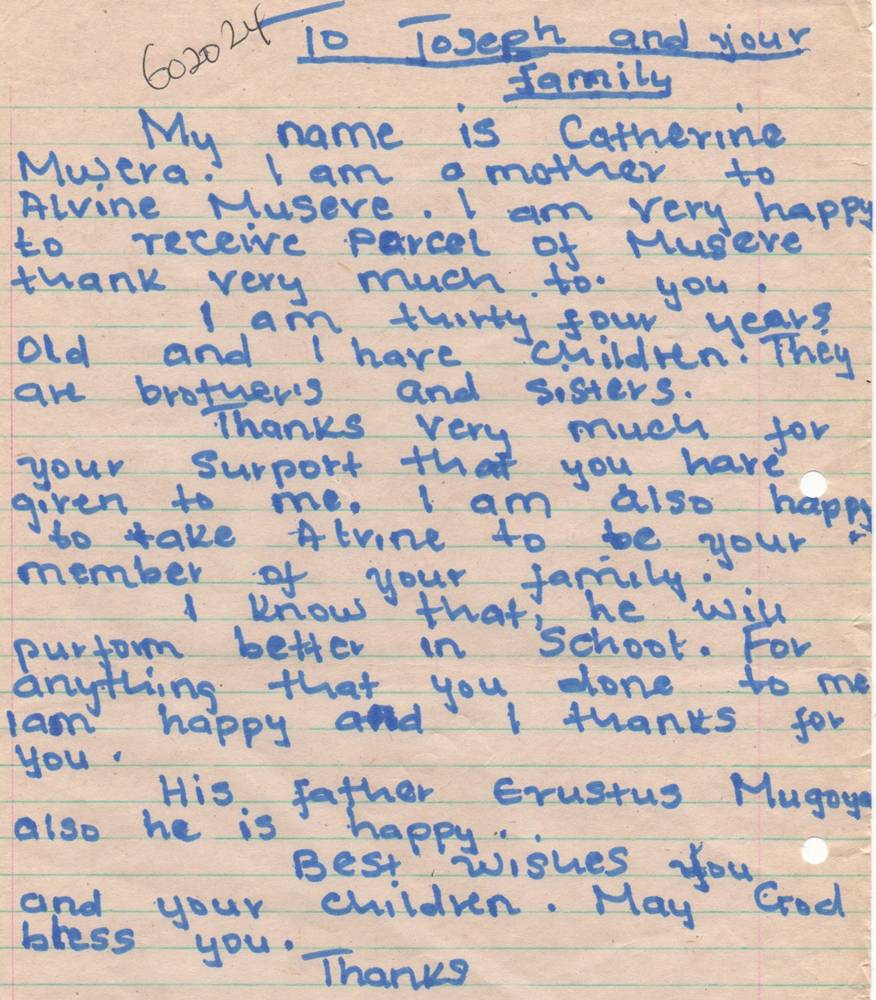 602024
To Joseph and your
family
My name is Catherine
Musera. I am a mother to
Alvine Museve. I am very happy
to receive parcel of Museve
thank very much to you.
I am thirty four years
Old and I have children. They
are brother's and sisters.
Thanks very much for
your Surport that you have
given to me. I am also happy
to take Alvine to be your
member of your family.
I know that, he will
purform better in School. For
anything that you done to me
I am happy and I thanks for
you.
His father Erustus Mugoya
also he is happy.
Best wishes you
and your children. May God
bless you.
Thanks